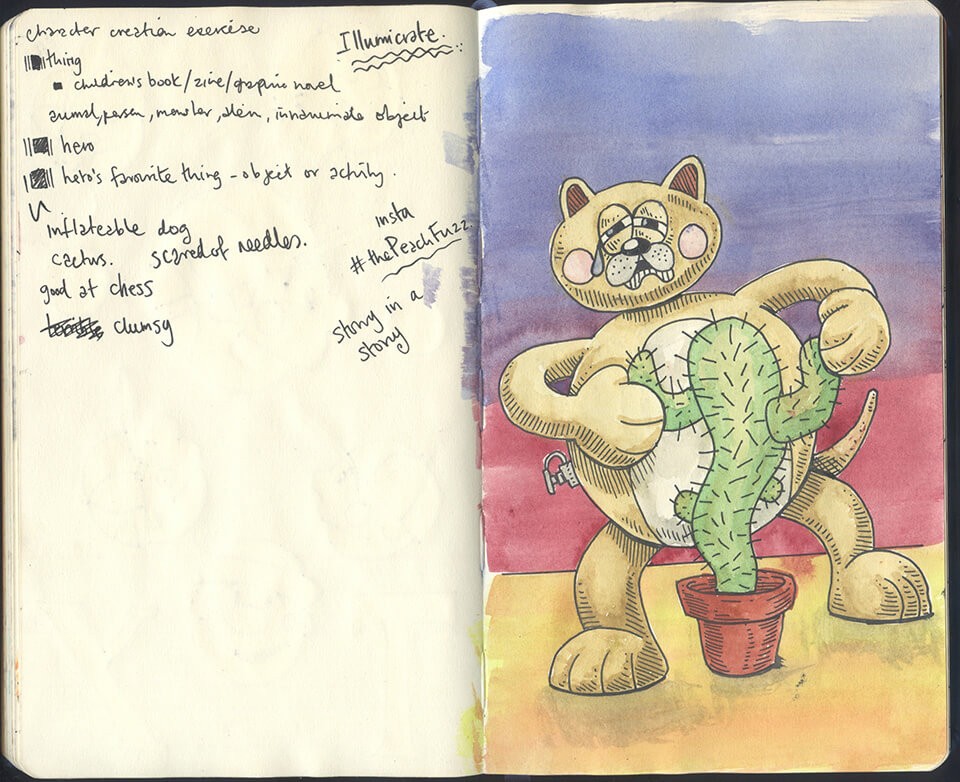 character creation exercise
Illumicrate.
thing
children's book/zine/graphic novel
animal, person, monster, alien, innanimate object
hero
hero's favourite thing - object or activity.
inflateable dog
cactus. scared of needles.
good at chess
clumsy
insta
#thePeachFuzz
story in a
story